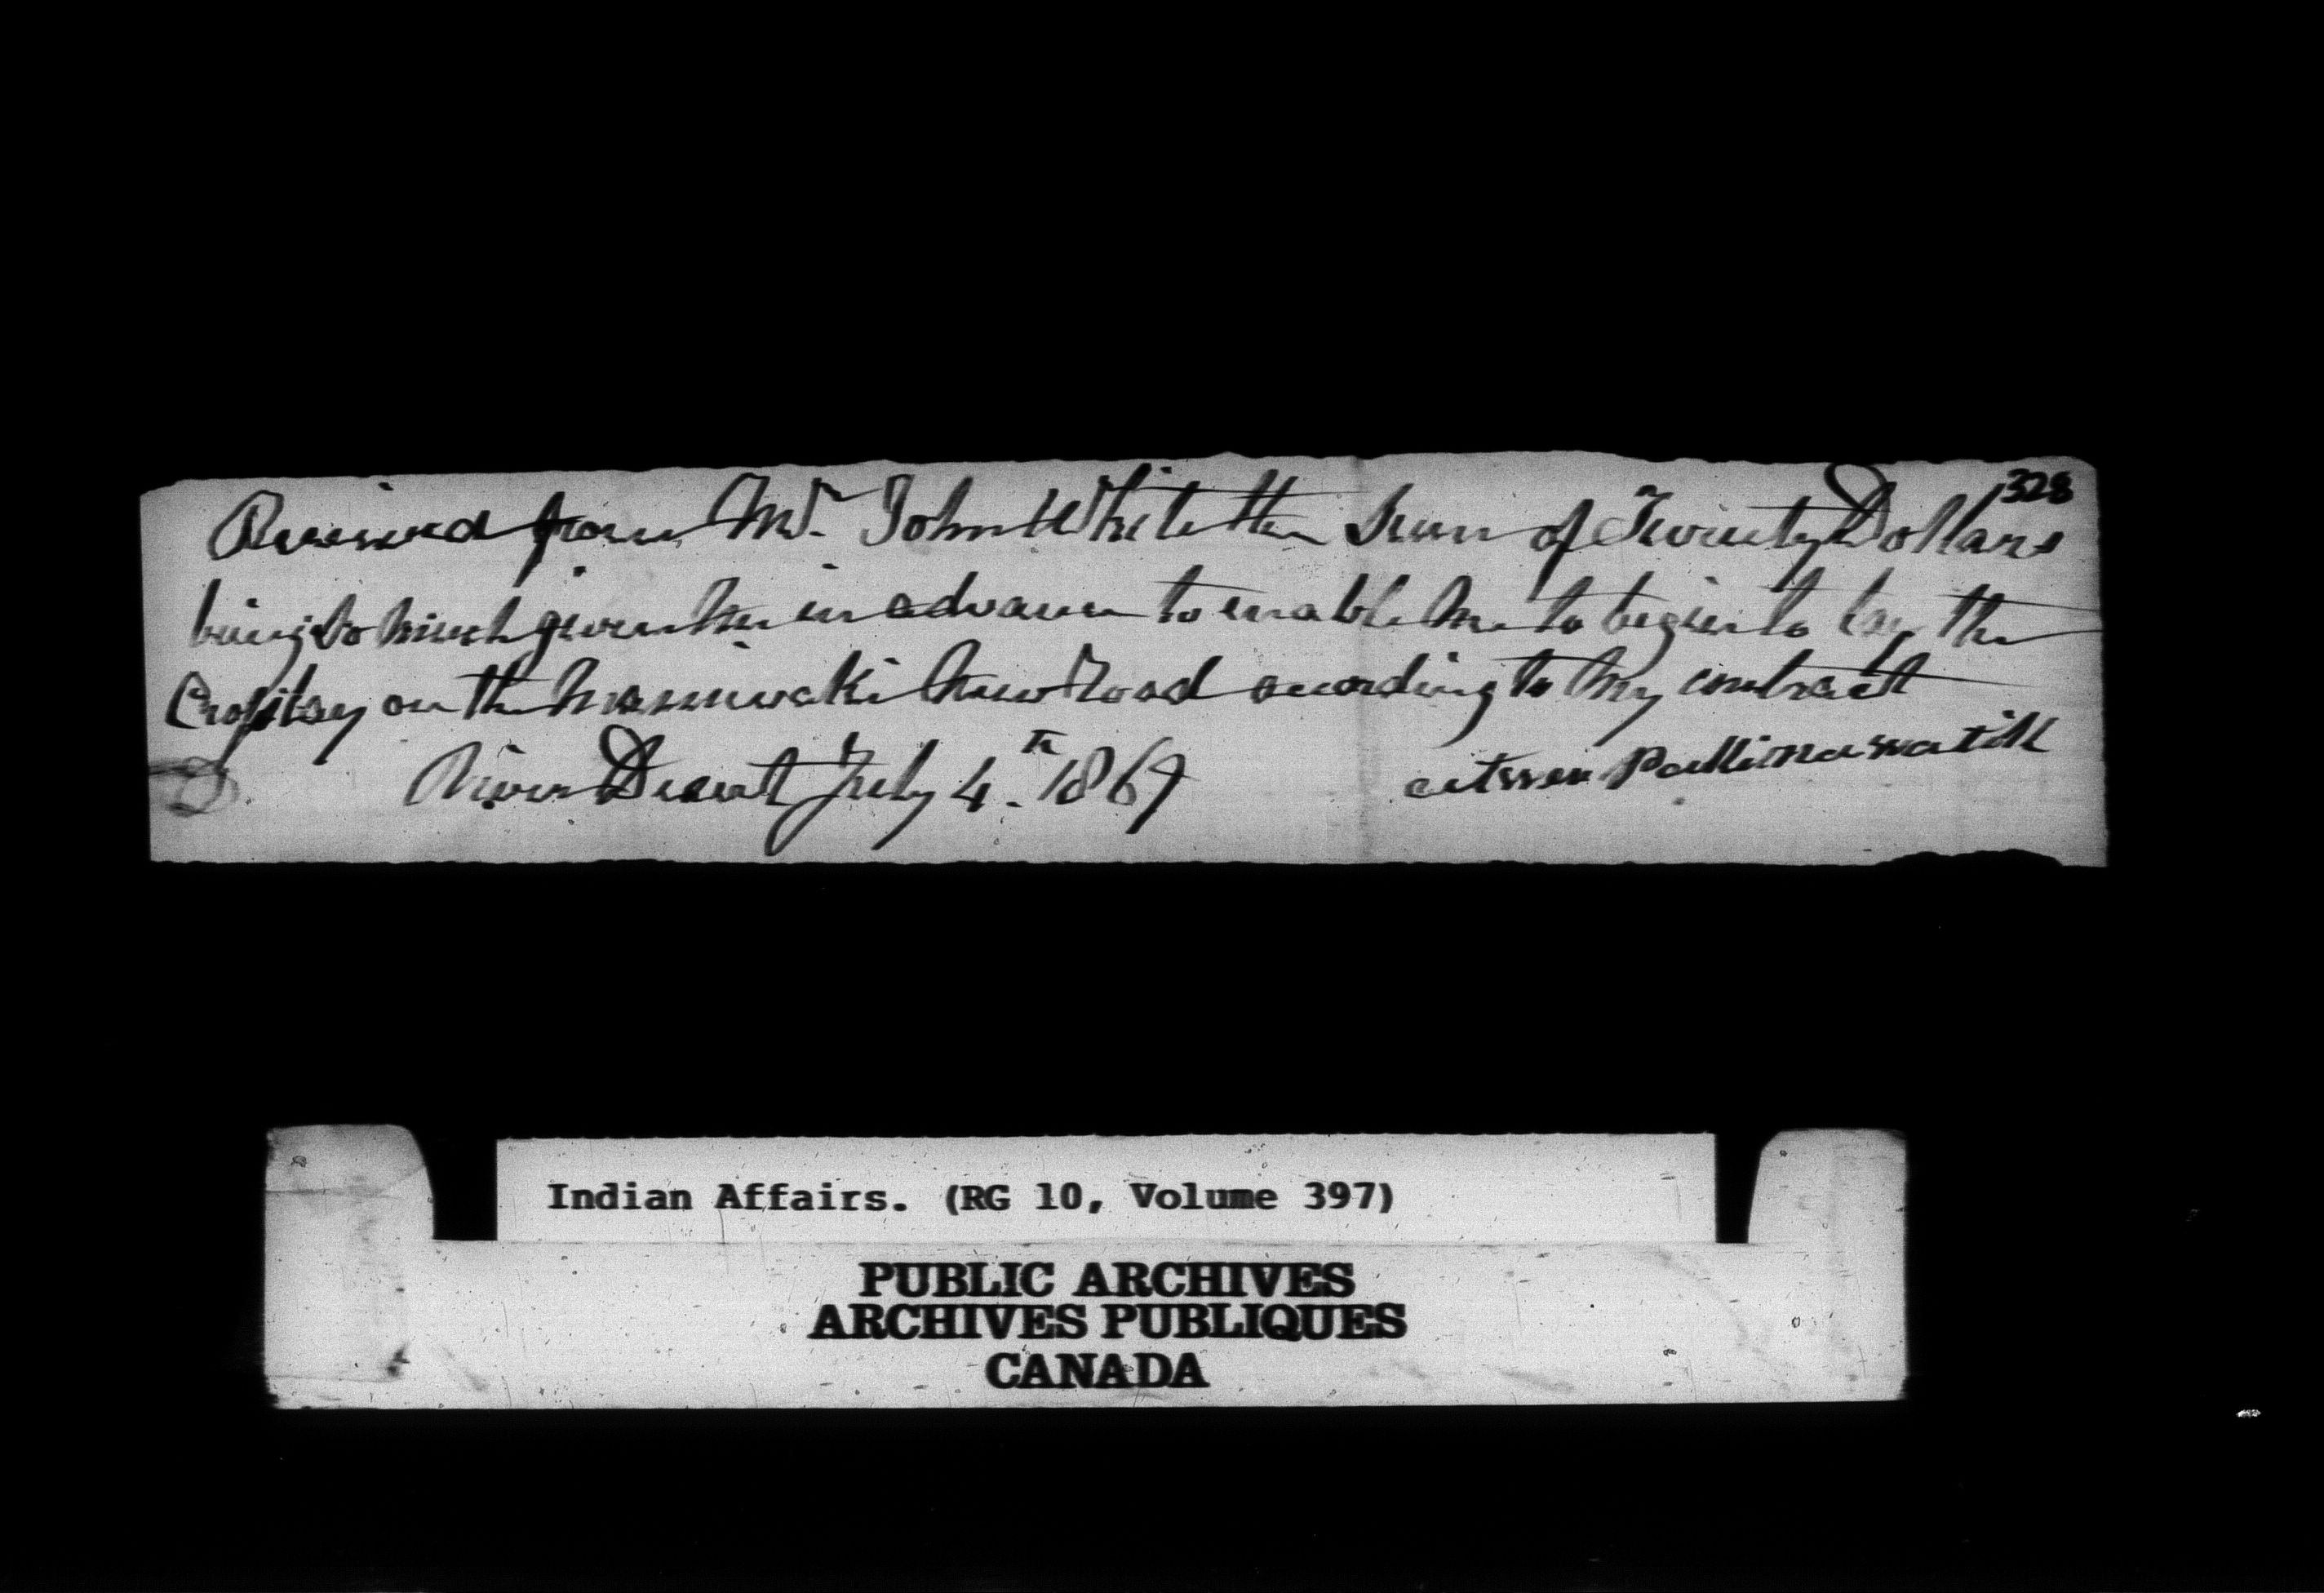 328
Received from Mr. John White the Sum of Twenty Dollars
being so much given me in advance to enable me to begin to lay the
Crossway on the Maniwaki New Road according to my contract
River Desert July 4th 1869
Indian Affairs. (RG 10, Volume 397)
PUBLIC ARCHIVES
ARCHIVES PUBLIQUES
CANADA